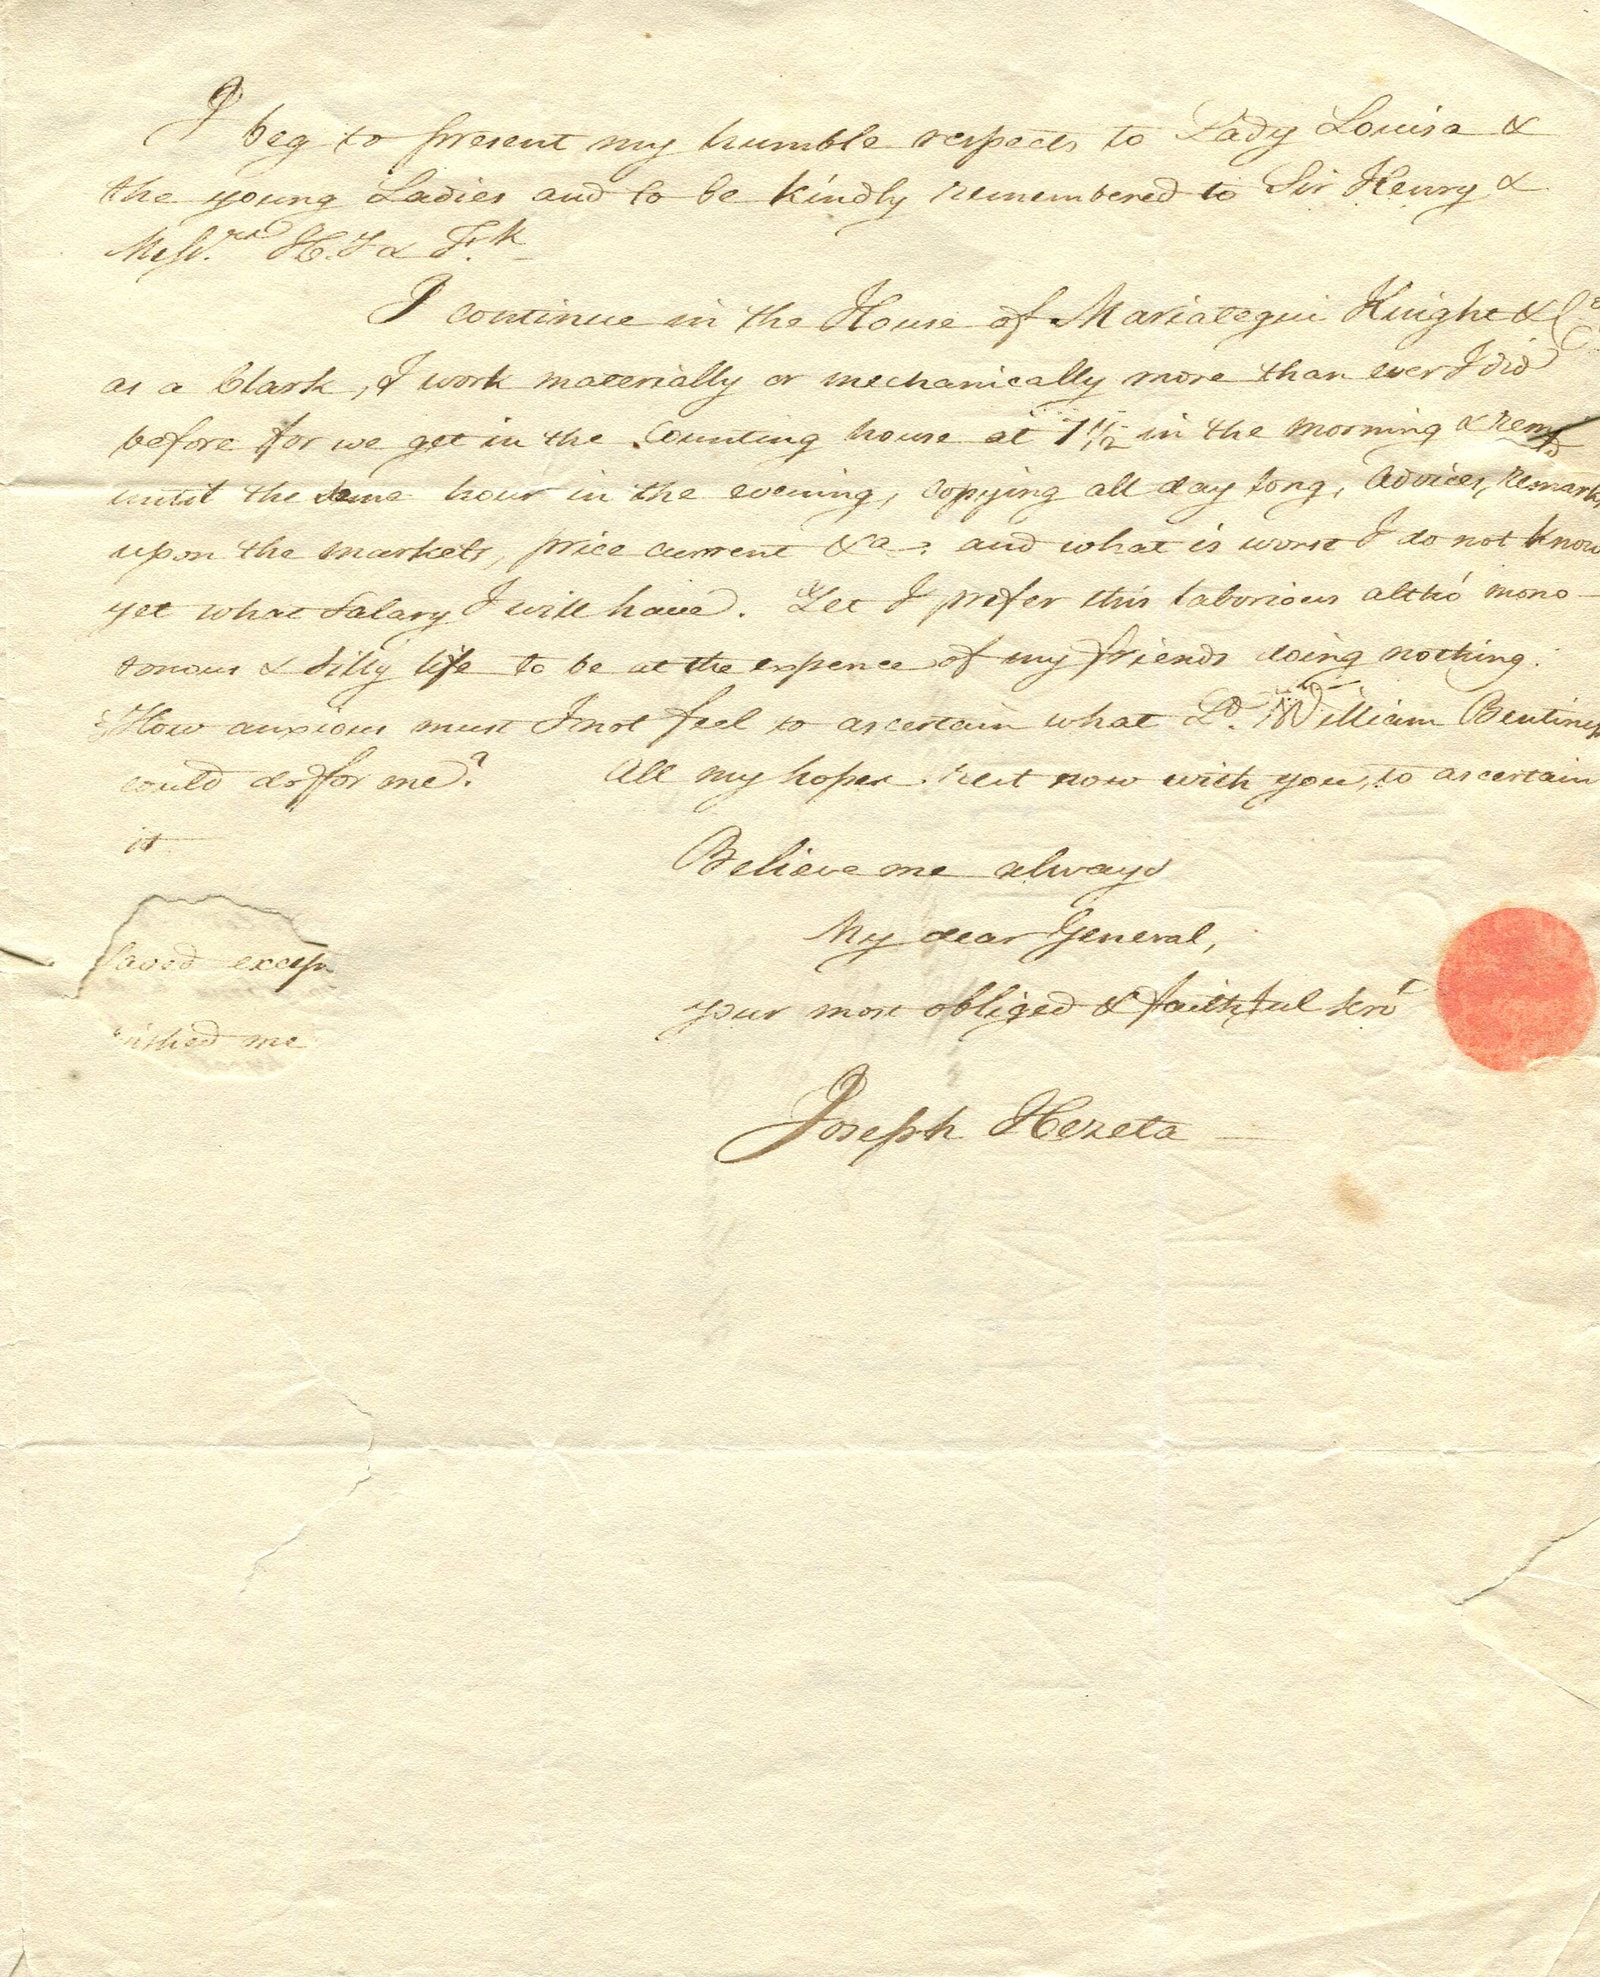 I beg to present my humble respects to Lady Louisa &
the young Ladies and to be kindly remembered to Sir Henry &
Messrs H. F & Frk
I continue in the House of Mariategui Knight & Co
as a Clark, I work materially or mechanically more than ever I did
before for we get in the Counting house at 7 1/2 in the morning & remd
until the same hour in the evening, Copying all day long, advices, remarks
upon the markets, price current &a : and what is worst I do not know
yet what Salary I will have. Yet I prefer this laborious altho' mono-
tonous & silly life to be at the expence of my friends doing nothing.
How anxious must I not feel to ascertain what Ld. William Bentinck
could do for me? All my hopes rest now with you, to ascertain
it
Believe me always
My dear General,
your most obliged & faithful Servt
Joseph Hezeta
saved excep
nished me